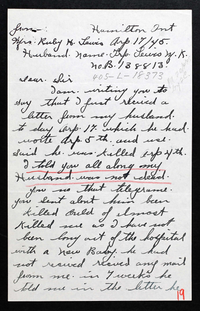 from Hamilton Ont
Mrs. Ruby H. Lewis Arp 17/45.
Husband. Name. Trp Lewis W.R.
No B. 138813
405-L-18373
Dear Sir
I am writing you to
say that I just recived a
letter from my husband.
to day Arp 17. which he had
wrote Arp 5th and we
said he was killed Arp 4th.
I told you all along my
Husband was not dead.
You so that telegrame.
you sent about him been
killed Overs almost
Killed me as I have not
been long out of the hospital
with a New Baby. he had
not recived any mail
from me. in 7 weeks he
told me in the letter he
19